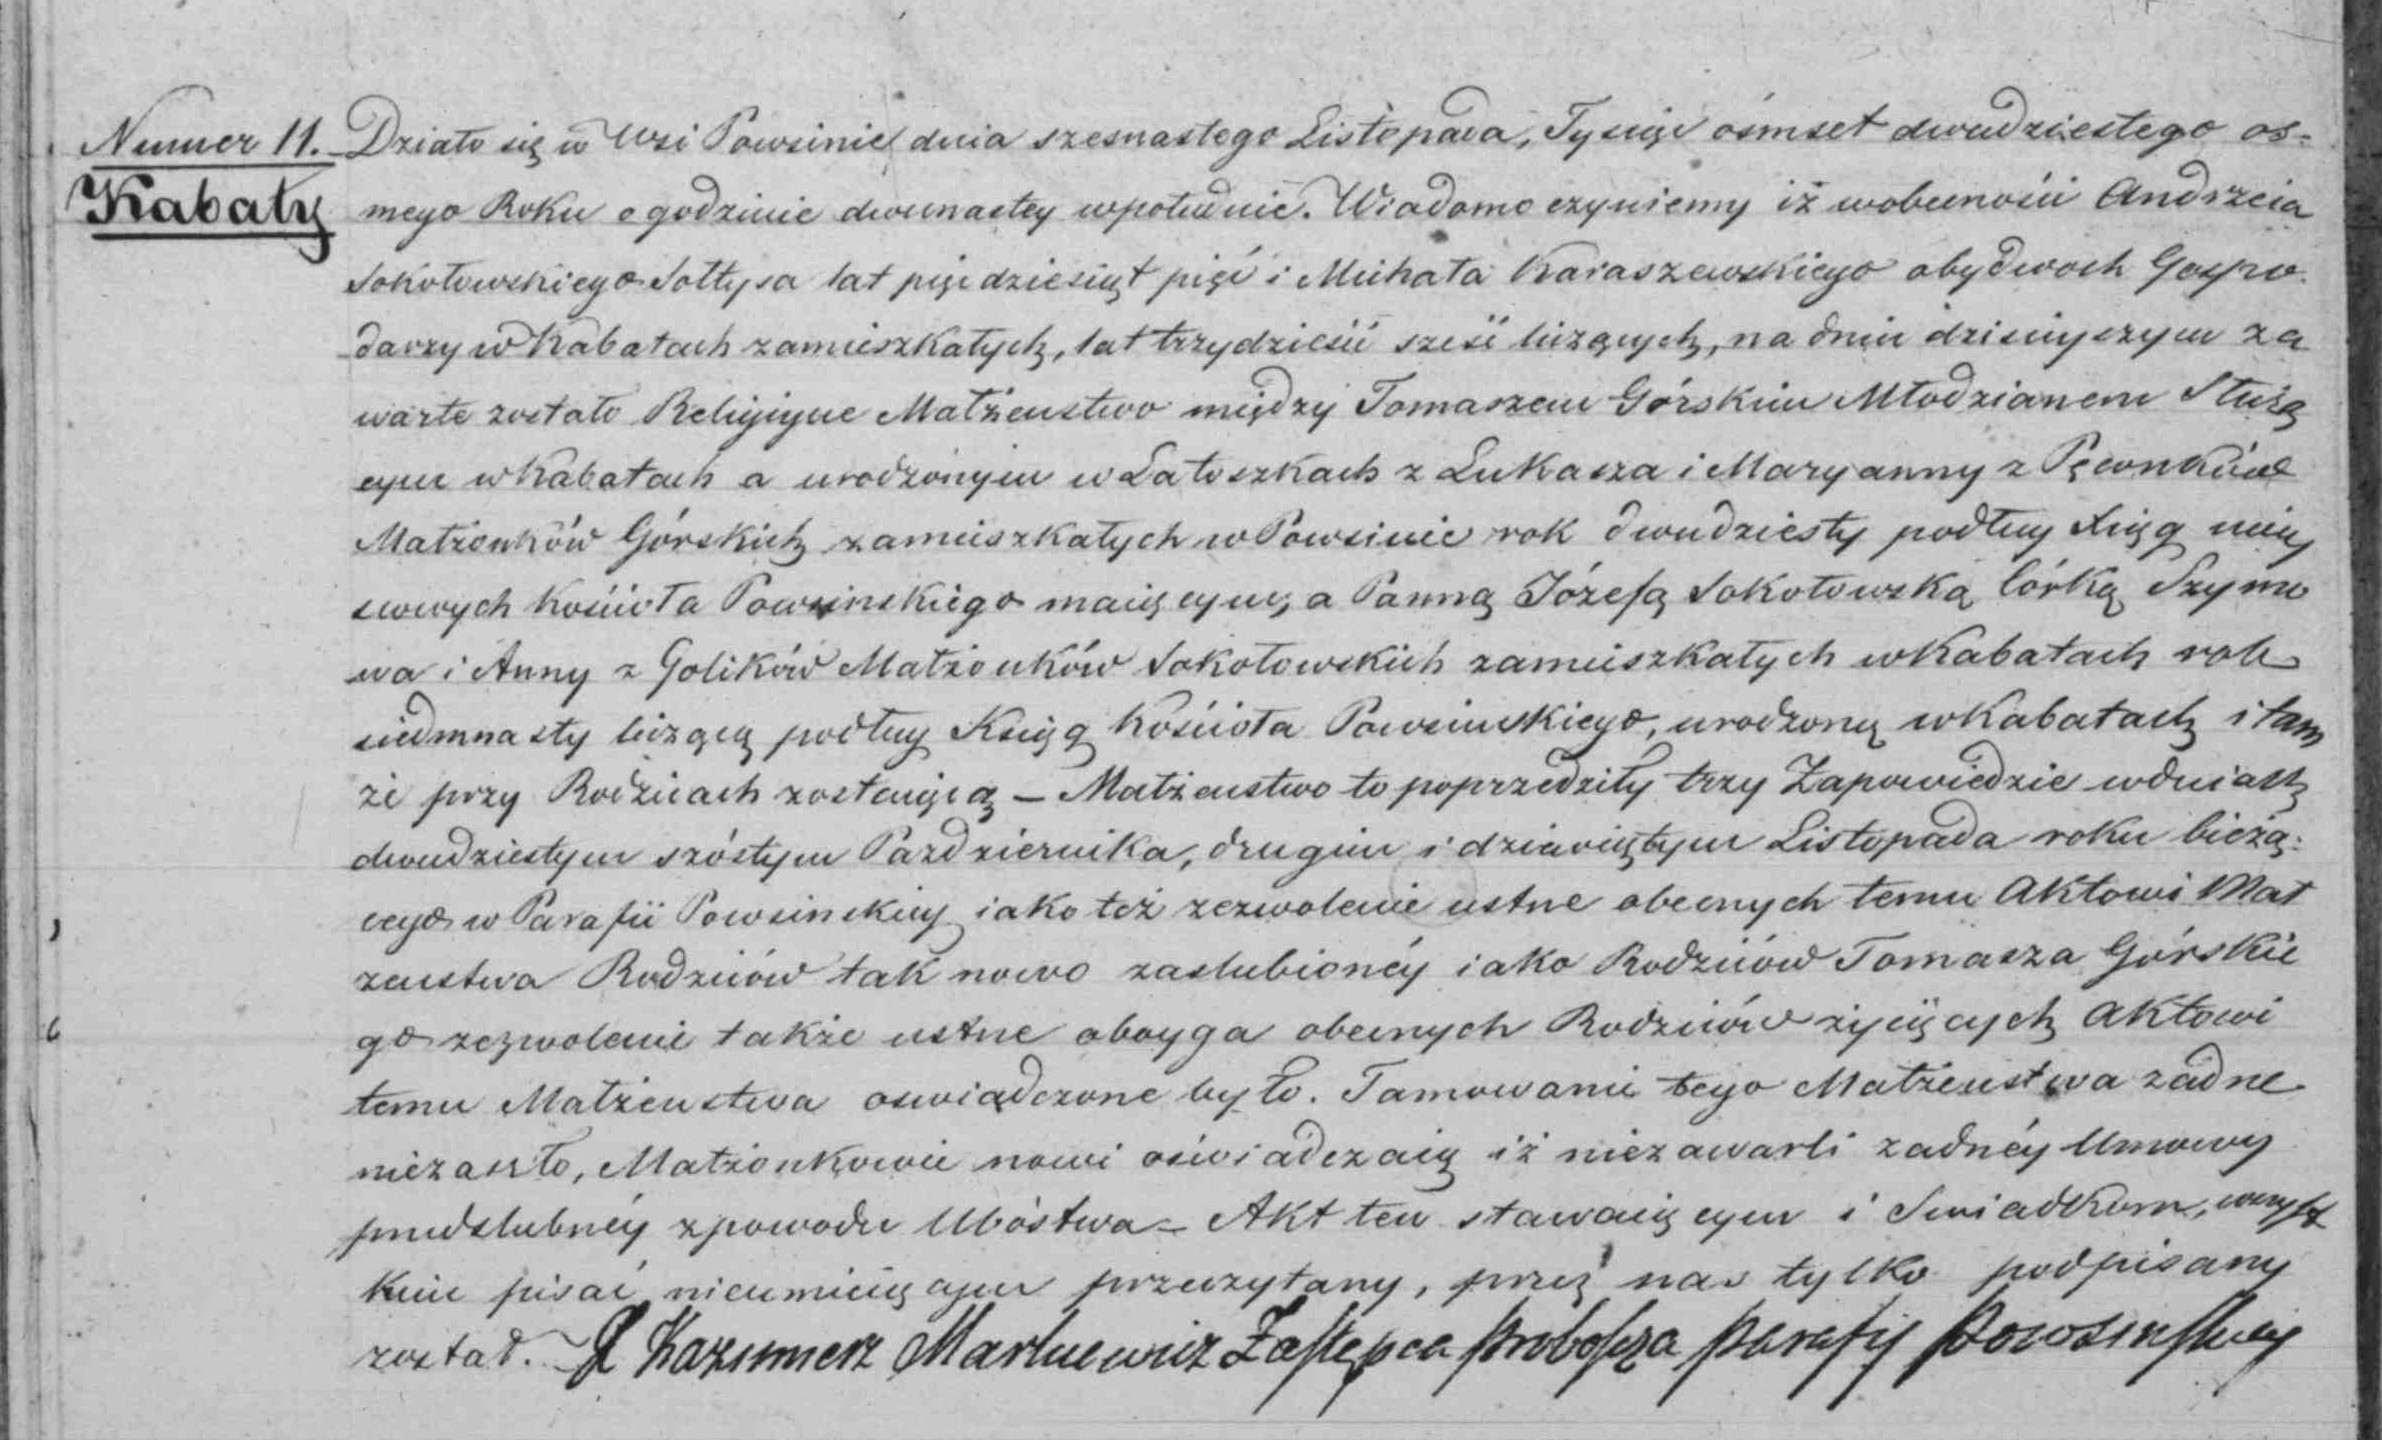 Numer 11. Działo się w Wsi Powsinie dnia szesnastego Listopada, Tysiąc ośmset dwudziestego os-
Kabaty mego Roku o godzinie dwunastey wpołudnie. Wiadomo czyniemy iż wobecności Andrzeia
Sokołowskiego Sołtysa lat pięćdziesiąt pięć i Michała Karaszewskiego obydwoch Gospo-
darzy w Kabatach zamieszkałych, lat trzydzieści sześć liczących, na dniu dzisieyszym za
warte zostało Religiyne Małżenstwo między Tomaszem Górskim Młodzianem Służą
cym w Kabatach a urodzonym w Latoszkach z Łukasza i Maryanny z
Małżonków Górskich zamieszkałych w Powsinie rok dwudziesty podług Xiąg miey
scowych Kościoła Powsinskiego maiącym, a Panną Józefą Sokołowską Córką Szymo
na i Anny z Golików Małżonków Sokołowskich zamieszkałych w Kabatach rok
siedmnasty liczącą podług Ksiąg Kościoła Powsinskiego, urodzoną w Kabatach i tam
że przy Rodzicach zostaiącą – Małżenstwo to poprzedziły trzy Zapowiedzie w dniach
dwudziestym szóstym Pazdziernika, drugim i dziewiątym Listopada roku bieżą-
cego w Parafii Powsinskiey iako też zezwolenie ustne obecnych temu Aktowi Mał
zenstwa Rodziców tak nowo zaslubionéy iako Rodziców Tomasza Górskie
go zezwolenie także ustne oboyga obecnych Rodziców żyiących Aktowi
temu Małżenstwa oswiadczone było. Tamowanie tego Małżenstwa zadne
niezaszło, Małżonkowie nowi oświadczaią iż niezawarli zadnéy Umowy
przedslubnéy zpowodu Ubóstwa – Akt ten stawaiącym i Swiadkom, wszyst
kim pisać nieumieiącym przeczytany, przez nas tylko podpisany
został. X Kazimierz Zastępca Proboszcza Parafii Powsinskiey